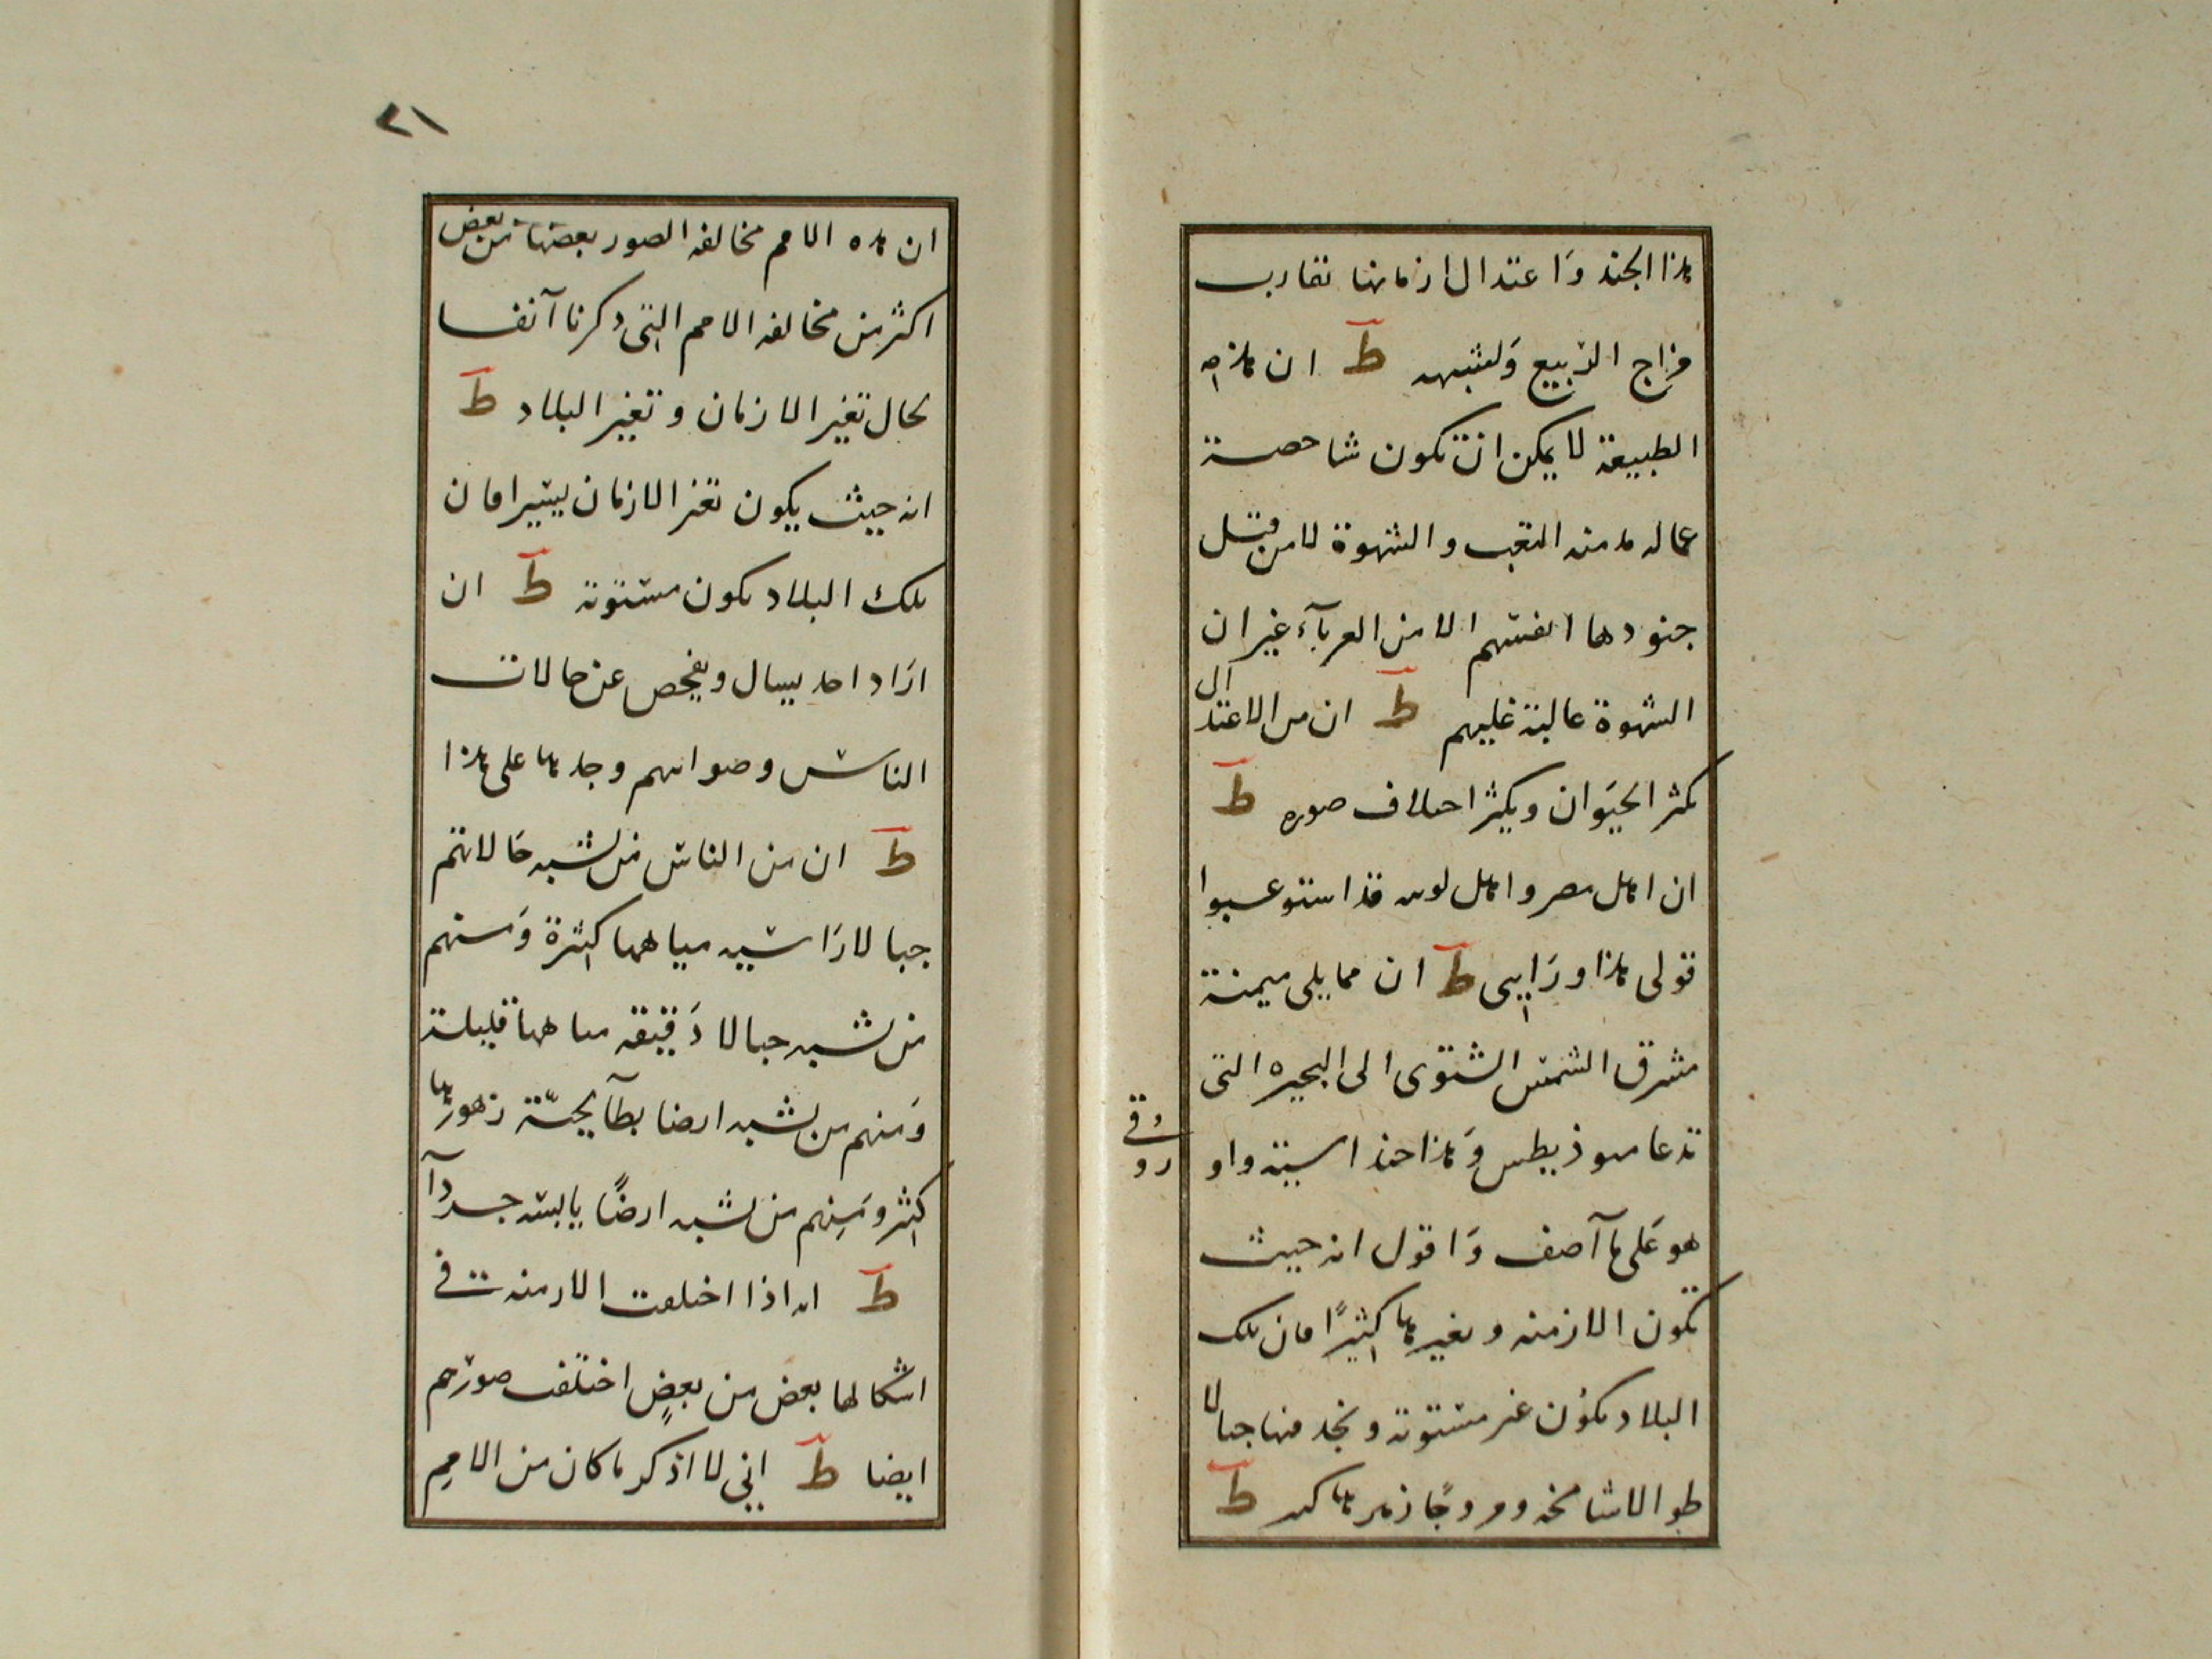 هذا الجند وَاعتدال ازمانها تقارب
مزاج الربيع وَلشبهه ط ان هذه
الطبيعة لا يمكن ان تكون شاحصة
عماله مدمنه التعب والشهوة لا من قبل
جنودها انفسهم الا من العربآء غير ان
الشهوة عالبة عليهم ط ان من الاعتدال
كثر الحيَوان ويكثر احلاف صوره ط
ان اهل مصر واهل لوىه قد استوعبوا
قولى هذا ورَايى ط ان مما يلى ميمنة
مشرق الشمس الشتوى الى البحيره التى
تدعا موذبطس وَهذا حد اسية واو
روفى
هو عَلى مآ آصف وَاقول انه حيث
تكون الازمنه وىغيرها كثيرًا فان تلك
البلاد تكون غىر مستوىة وتجد فىها جبالا
طوالا شامخه ومروجًا زهرها كىىر ط
٢١
ان هذه الامم مخالفه الصور بعضها من بعض
اكثر من مخالفه الامم التى ذكرنا آنفا
لحال تغير الازمان وتغير البلاد ط
انه حيث يكون تغىر الازمان يسيرا فان
تلك البلاد تكون مستوىة ط ان
ارَاد احد يسال ويفحص عن حالات
الناس وصوراتهم وجدها على هذا
ط ان من الناس من لشبه حَالاتهم
جبالا رَاسيه مياهها كثرة وَمنهم
من لشبه جبالا دَقيقه مىاهها قليلة
وَمنهم من يشبه ارضا بطآيحيّة زهورها
كثر ومَنهم من لشبه ارضًا يابسه جردآ
ط انه اذا اختلفت الازمنه فى
اشكالها بعض من بعضٍ اختلفت صورَهم
ايضا ط اني لا اذكر ما كان من الامم